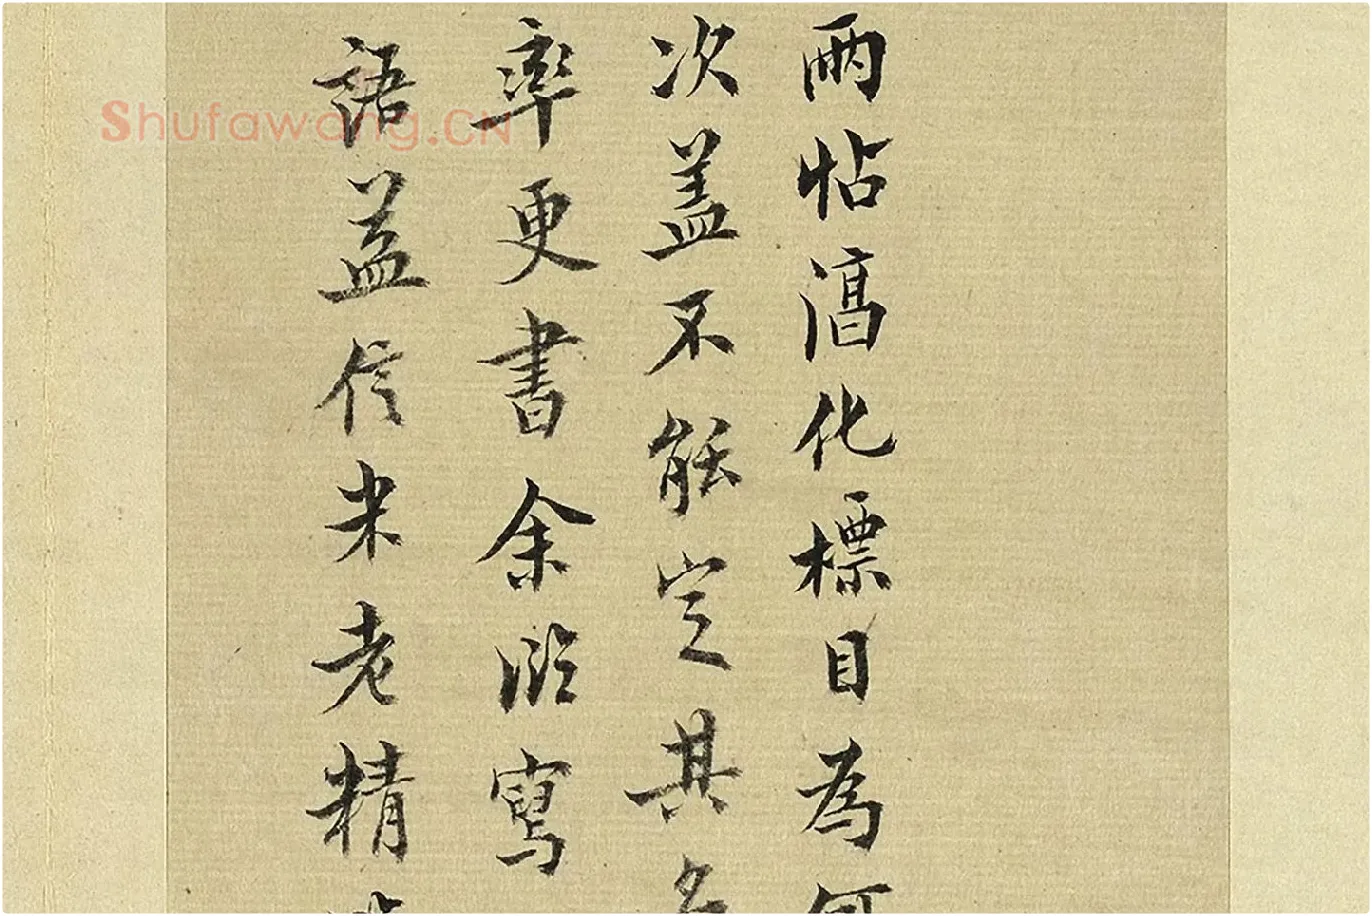 兩帖淳化標目為何
次蓋不能定其名
率更書余臨寫
語蓋信米老精
Shufawang.CN